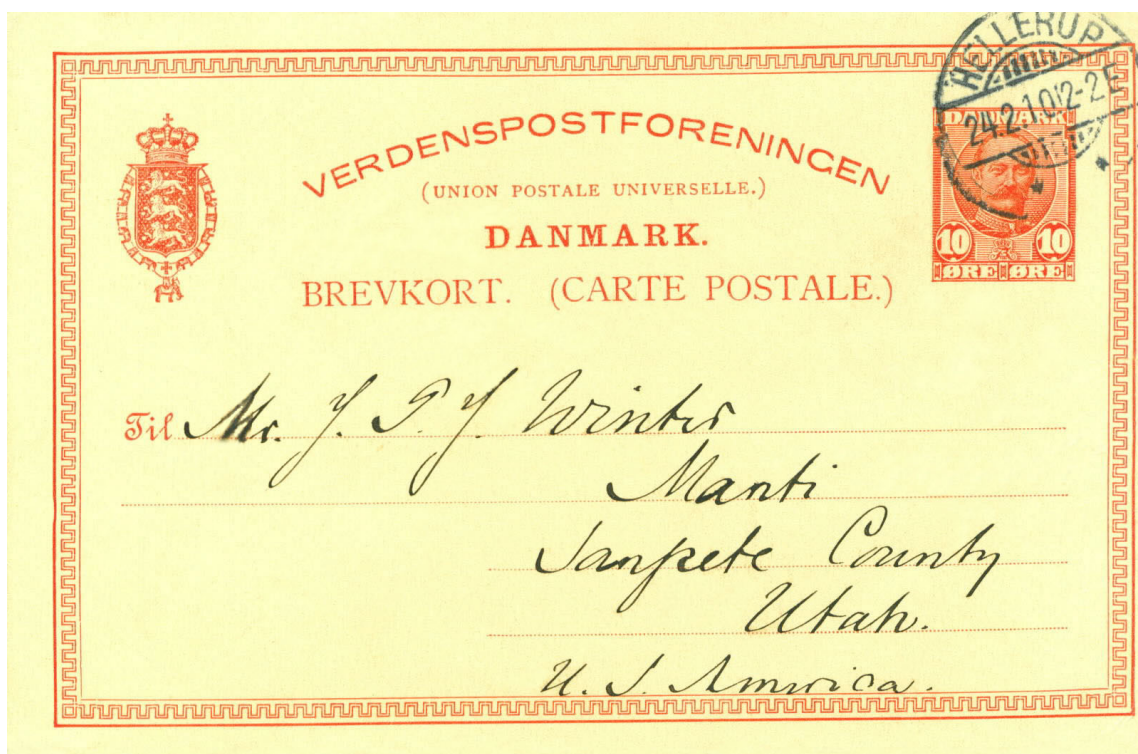 HELLERUP
24.2.10 12-2E
VERDENSPOSTFORENINGEN
(UNION POSTALE UNIVERSELLE.)
DANMARK.
BREVKORT. (CARTE POSTALE.)
DANMARK
10 10
ØRE ØRE
Til Mr. J. P. J. Winter
Manti
Sanpete County
Utah.
U. S. America.